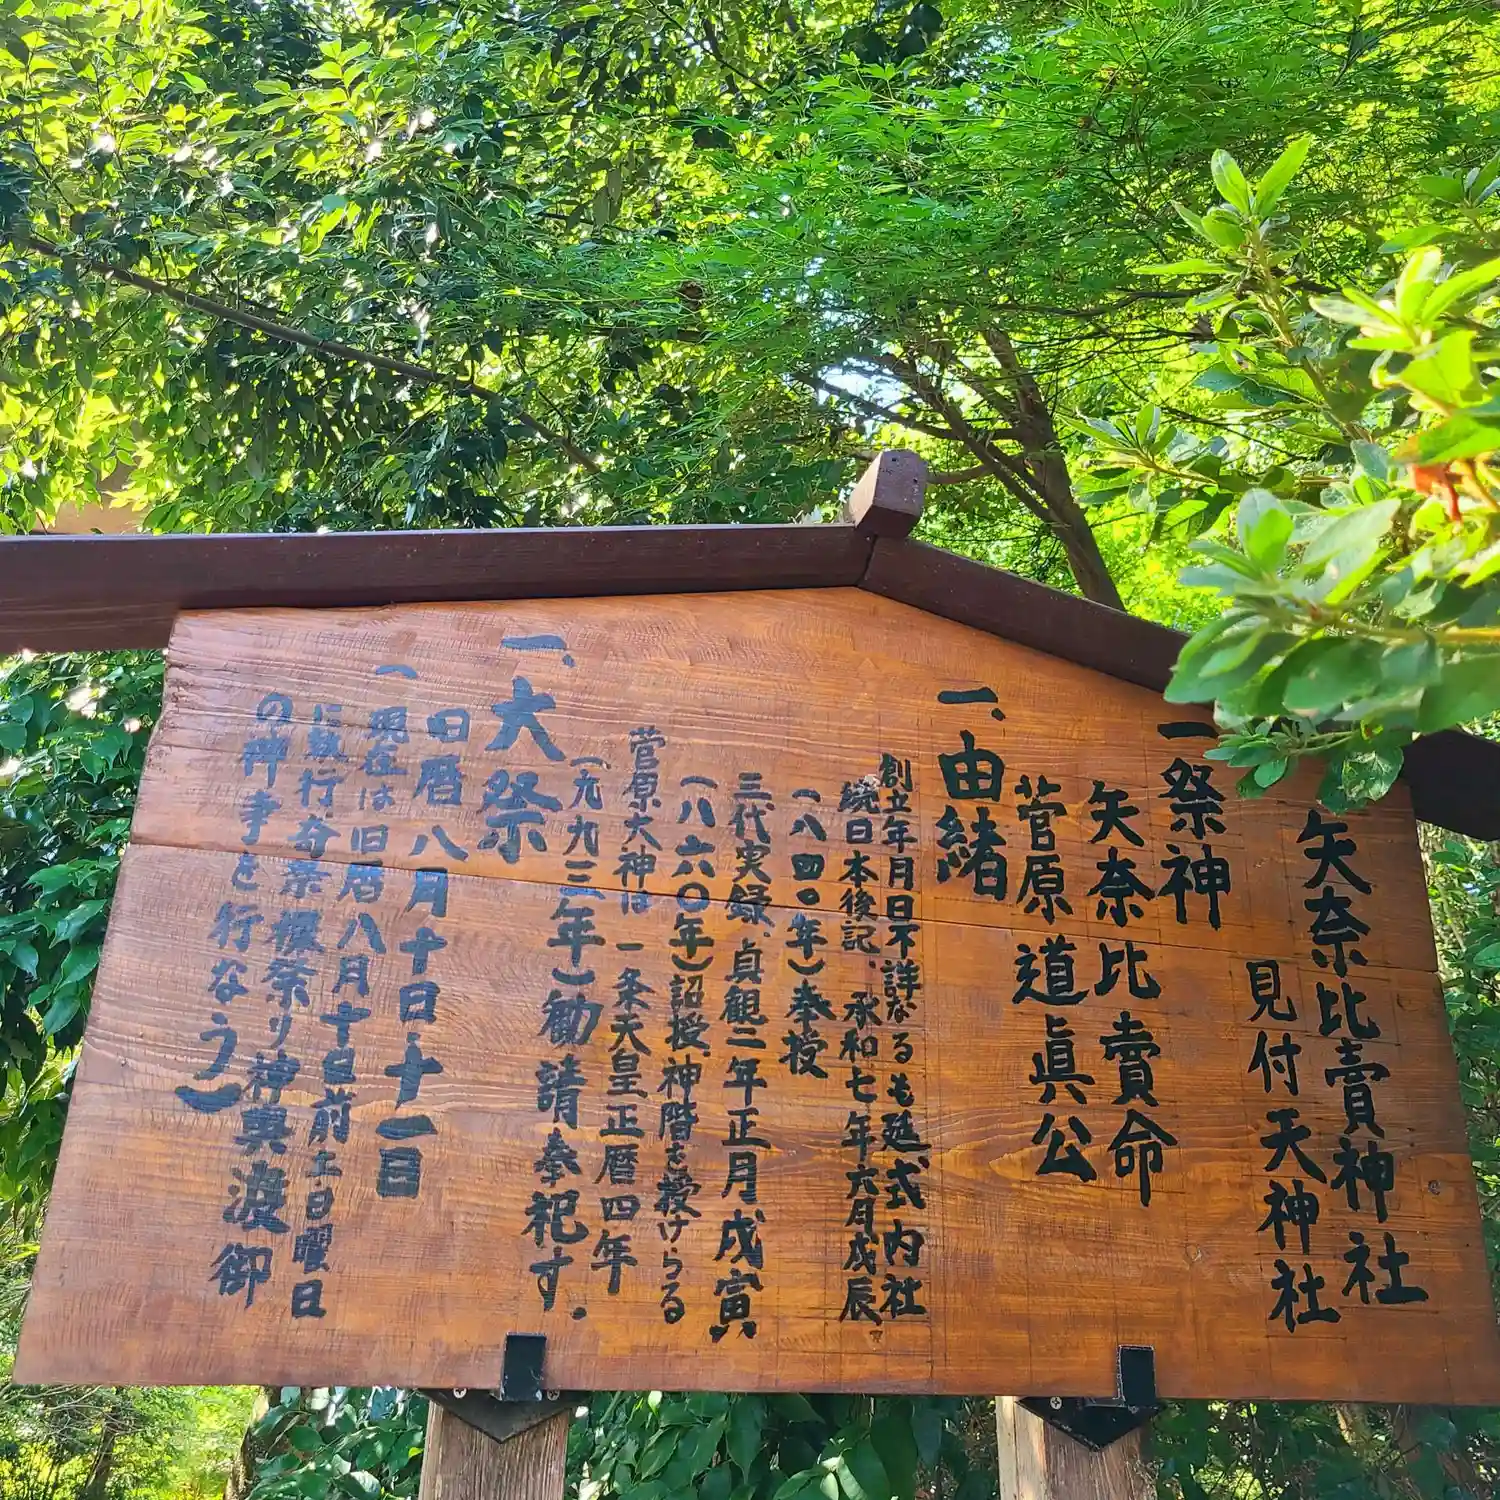 矢奈比賣神社
見付天神社
一祭神
矢奈比賣命
菅原道眞公
一、由緒
創立年月日不詳なるも延㐂式内社
続日本後記、承和七年六月戊辰
(八四〇年)奉授
三代実録、貞観二年正月戊寅
(八六〇年)詔授、神階を授けらる
菅原大神は一条天皇正暦四年
(九九三年)勧請奉祀す。
一、大祭
旧暦八月十日・十一日
(現在は旧暦八月十日直前土日曜日
に執行奇祭裸祭り神輿渡御
の神事を行なう)